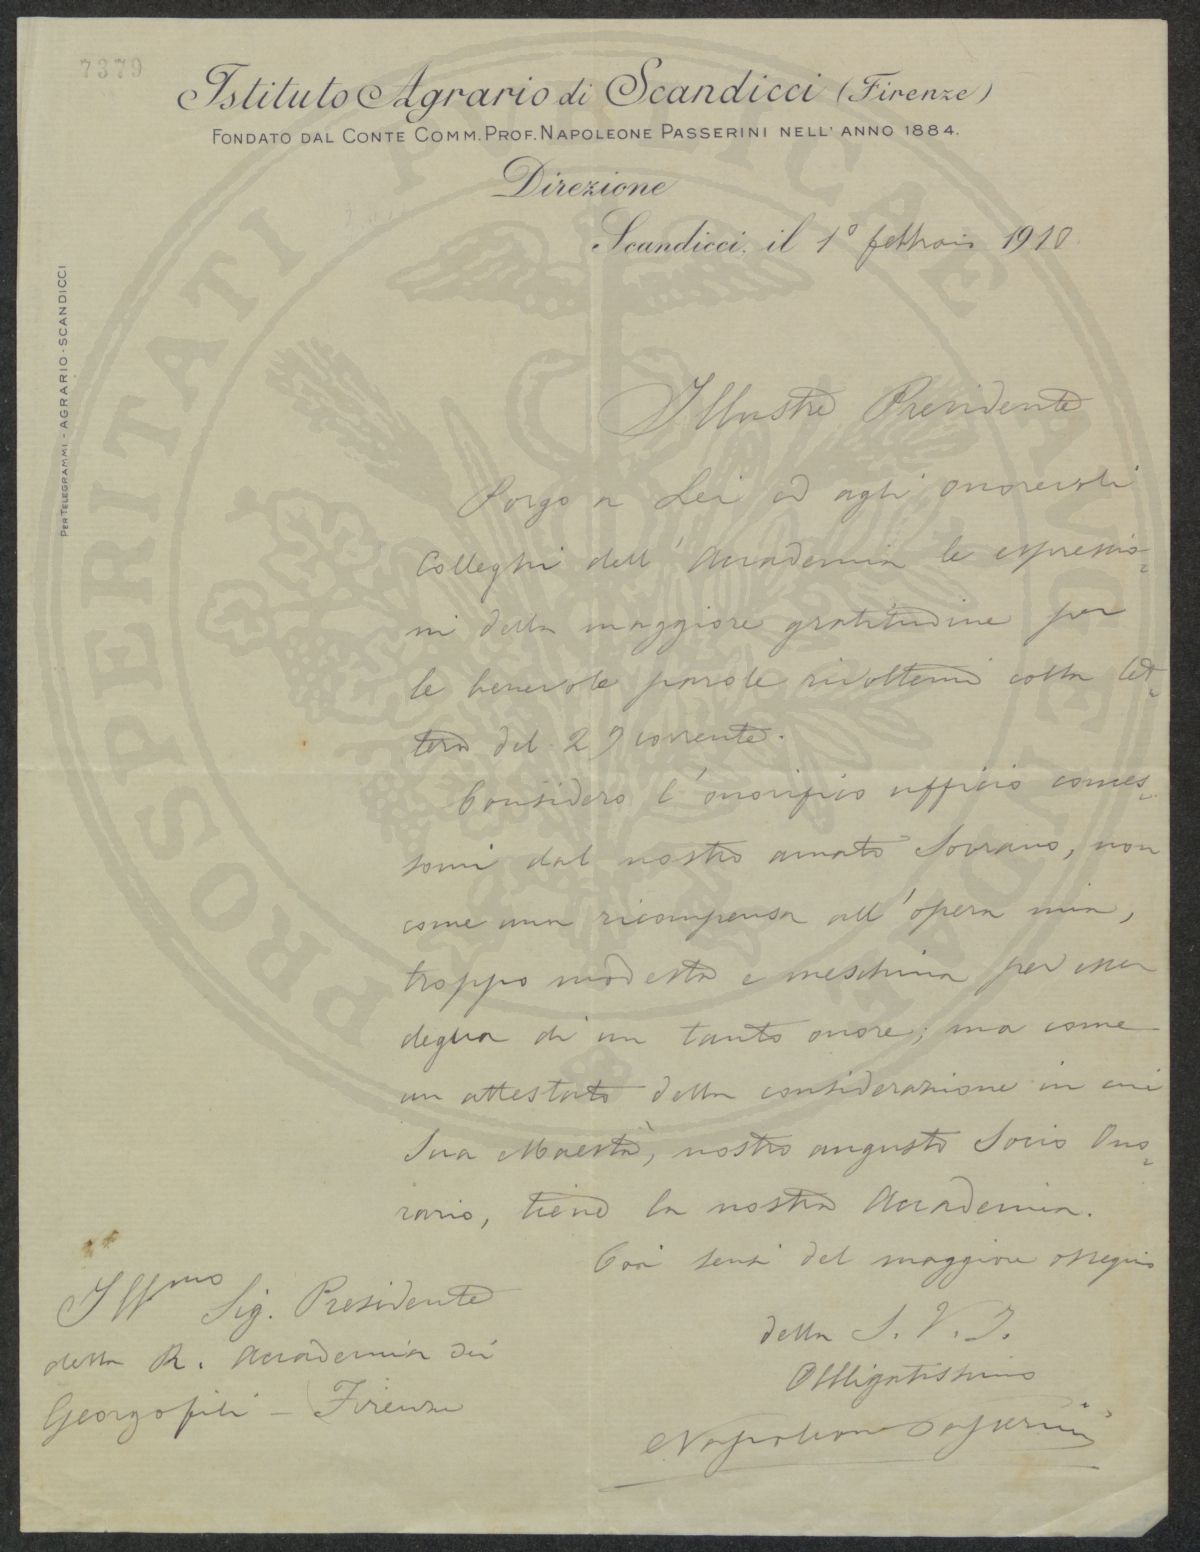 7379
Istituto Agrario di Scandicci (Firenze)
FONDATO DAL CONTE COMM. PROF. NAPOLEONE PASSERINI NELL' ANNO 1884.
Direzione
Scandicci, il 1° febbraio 1910
PER TELEGRAMMI - AGRARIO - SCANDICCI
PROSPERITATI PUBLICAE AUGENDAE
Illustre Presidente
Porgo a Lei ed agli onorevoli
Colleghi dell'Accademia le espressio-
ni della maggiore gratitudine per
le benevole parole rivoltemi colla let-
tera del 29 corrente.
Considero l'onorifico ufficio commes-
somi dal nostro amato Sovrano, non
come una ricompensa all'opera mia,
troppo modesta e meschina per esser
degna di un tanto onore; ma come
un attestato della considerazione in cui
Sua Maestà, nostro augusto Socio Ono-
rario, tiene la nostra Accademia.
Coi sensi del maggiore ossequio
della S. V. I.
Obbligatissimo
Napoleone Passerini
Ill.mo Sig. Presidente
della R. Accademia dei
Georgofili - Firenze